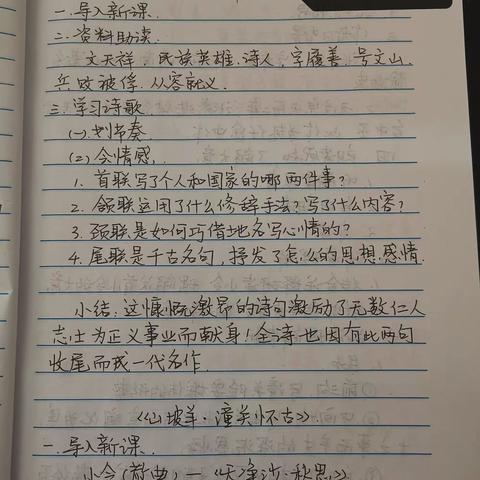 一.导入新课.
二.资料助读.
文天祥，民族英雄.诗人，字履善.号文山.
兵败被俘.从容就义.
三.学习诗歌.
(一)划节奏.
(二)会情感.
1. 首联写了个人和国家的哪两件事?
2. 颔联运用了什么修辞手法?写了什么内容?
3. 颈联是如何巧借地名写心情的?
4. 尾联是千古名句，抒发了怎么的思想.感情.
小结:这慷慨激昂的诗句激励了无数仁人
志士为正义事业而献身!全诗也因有此两句
收尾而成一代名作.
《山坡羊·潼关怀古》.
一.导入新课.
小令(散曲)—《天净沙·秋思》